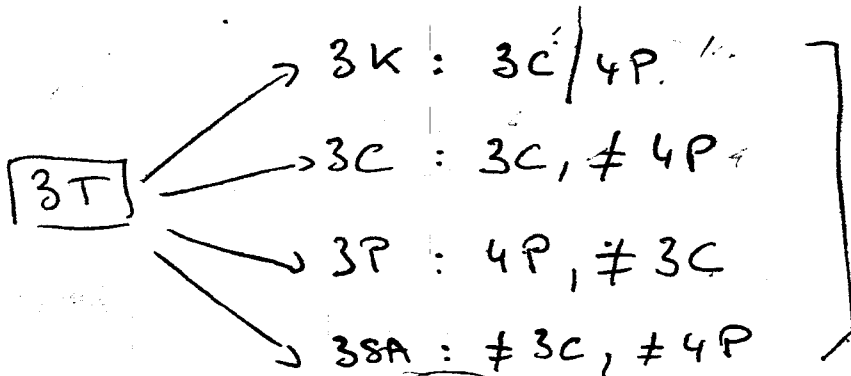 3K : 3C/4P.
3C : 3C, ≠ 4P
3T
3P : 4P, ≠ 3C
3SA : ≠ 3C, ≠ 4P